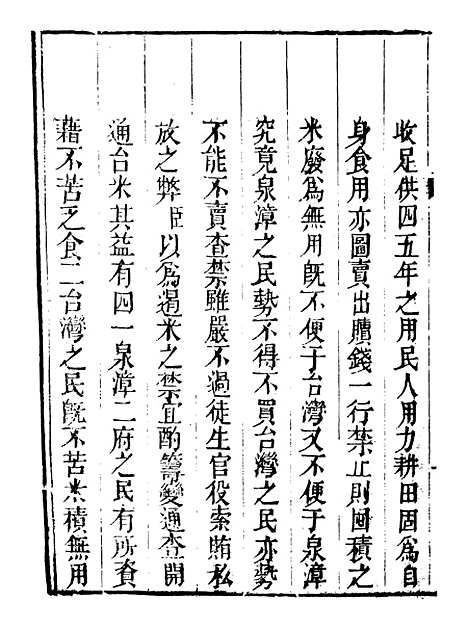 收足供四五年之用民人用力耕田固為自
身食用亦圖賣出賺錢一行禁止則囤積之
米廢為無用旣不便于台灣又不便于泉漳
究竟泉漳之民勢不得不買台灣之民亦勢
不能不賣查禁雖嚴不過徒生官役索賄私
放之弊臣以為遏米之禁宜酌籌變通查開
通台米其益有四一泉漳二府之民有所資
藉不苦乏食二台灣之民旣不苦米積無用